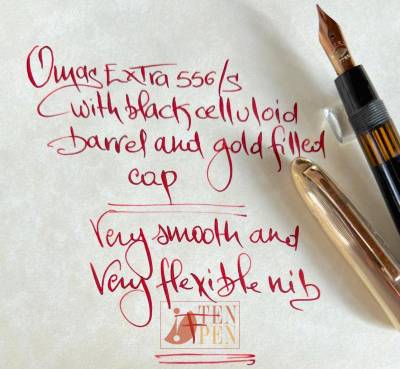 Omas Extra 556/S
with black celluloid
barrel and gold filled
cap
Very smooth and
Very flexible nib
TEN
PEN